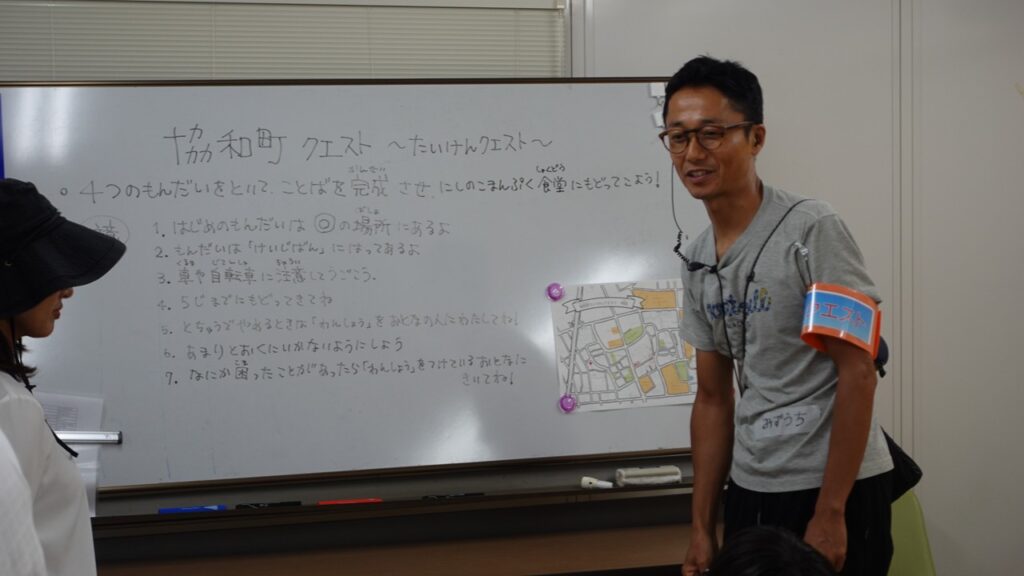 協和町 クエスト ～たいけんクエスト～
。4つのもんだいをといて、ことばを完成させ、にしのこまんぷく食堂にもどってこよう！
かんせい
しょくどう
注
1. はじめのもんだいは ◎ の場所にあるよ
ばしょ
2. もんだいは「けいじばん」にはってあるよ
くるま じてんしゃ ちゅうい
3. 車や自転車に注意してうごこう。
4. 5じまでにもどってきてね
5. とちゅうでやめるときは「わんしょう」をおとなの人にわたしてね！
6. あまりとおくにいかないようにしよう
こま
7. なにか困ったことがあったら「わんしょう」をつけているおとなに
きいてね！
クエスト
みずうち